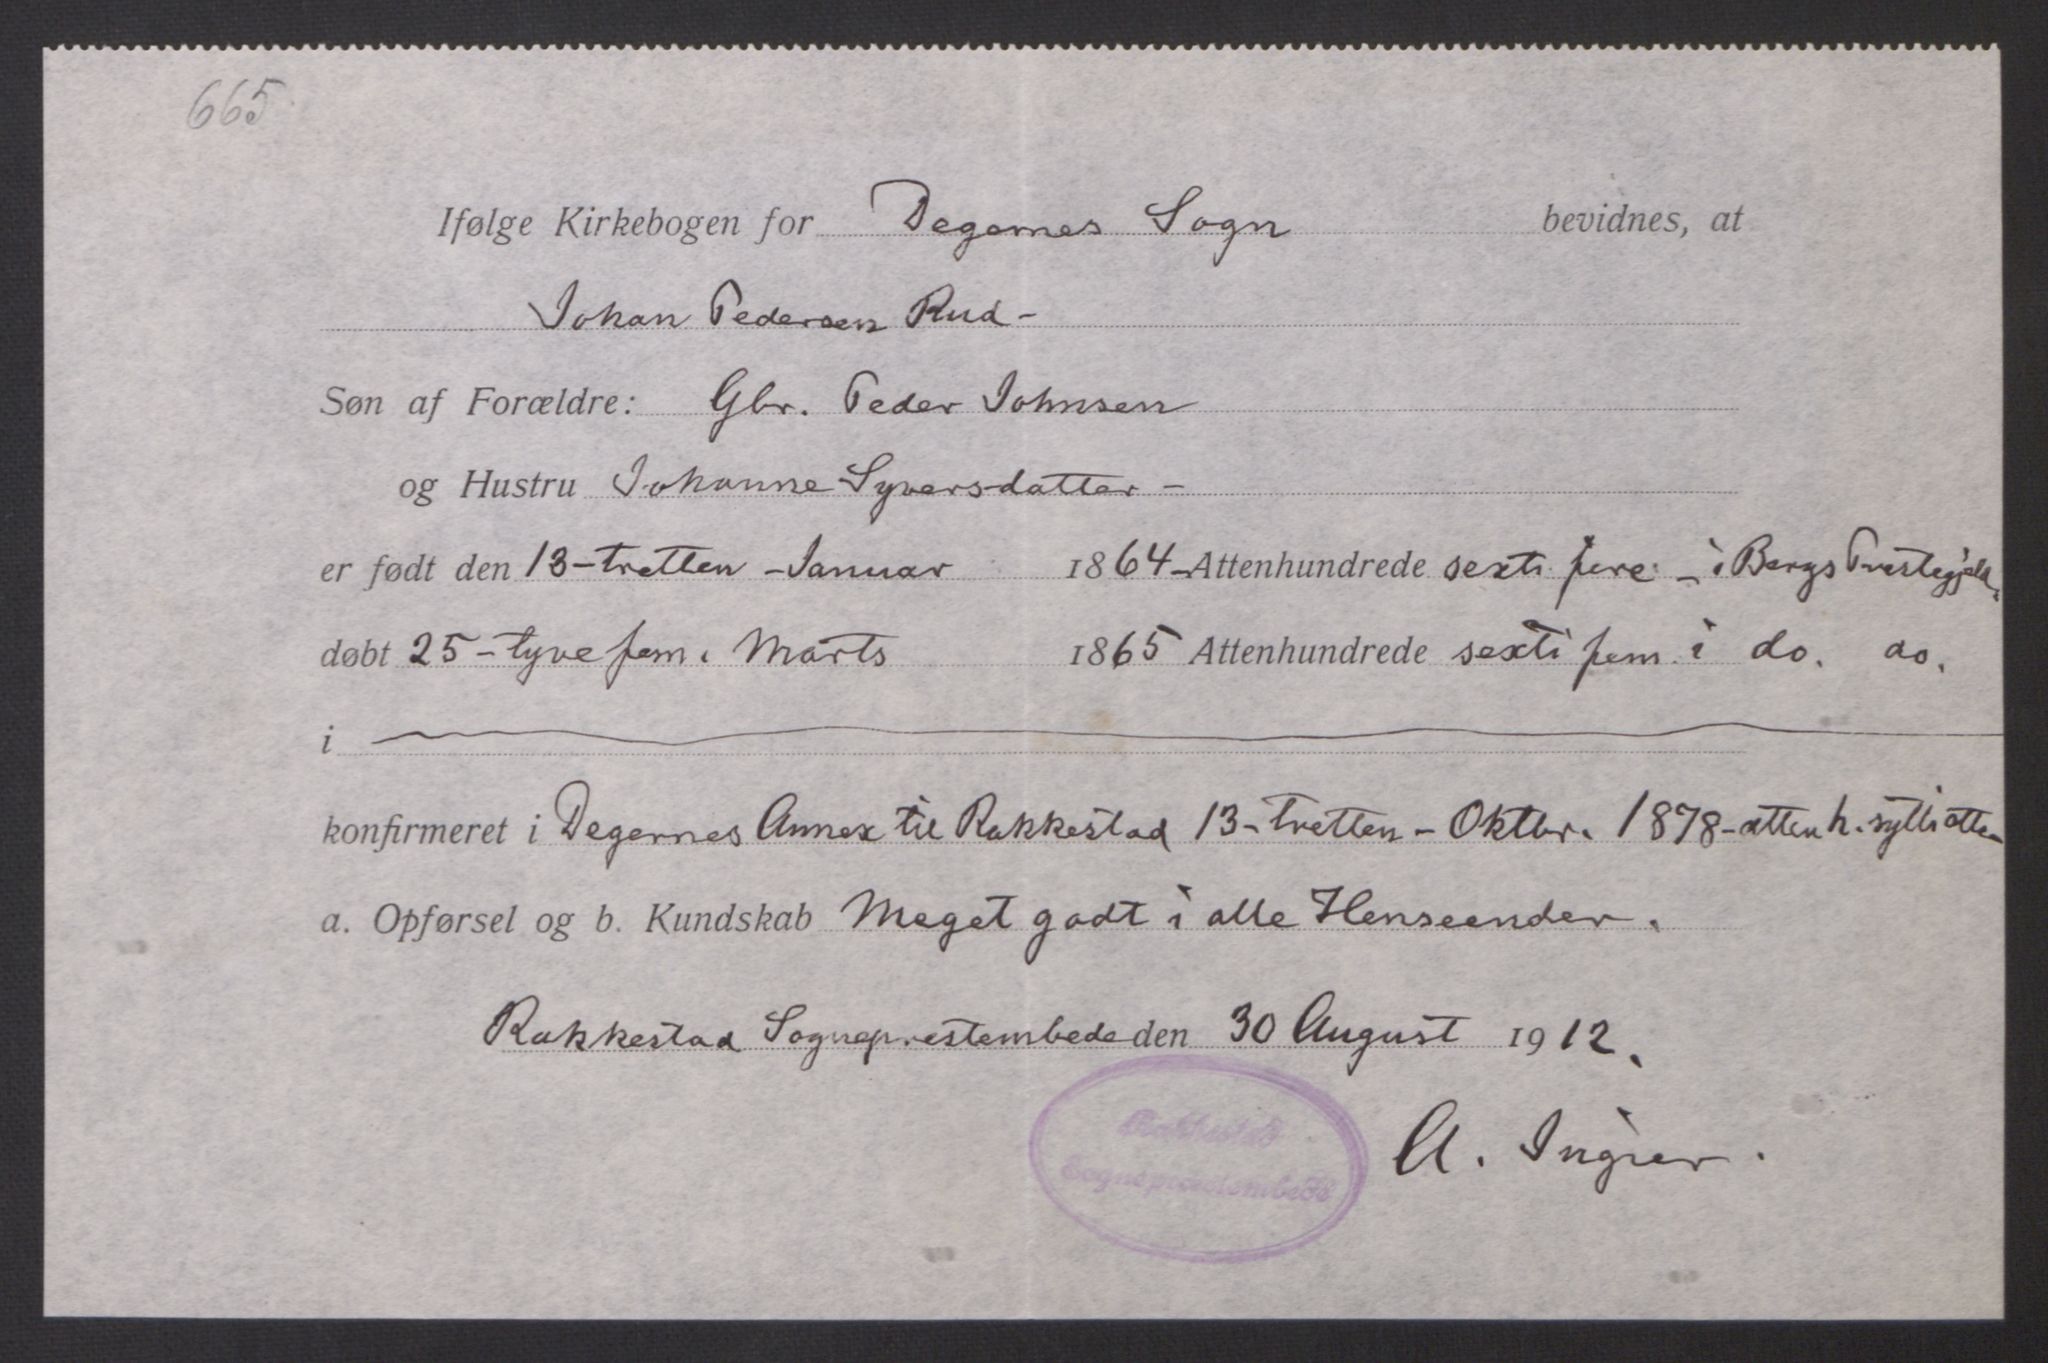 665
Ifølge Kirkebogen for Degernes Sogn bevidnes, at
Johan Pedersen Rud -
Søn af Forældre: Gbr. Peder Johnsen
og Hustru Johanne Syversdatter -
er født den 13 - tretten - Januar 1864 - Attenhundrede sexti fire - i Bergs Prestegjeld.
døbt 25 - tyve fem. Marts 1865 Attenhundrede sexti fem i do. do.
i
konfirmeret i Degernes Annex til Rakkestad 13 - tretten - Oktbr. 1878 - atten h. sytti otte -
a. Opførsel og b. Kundskab Meget godt i alle Henseender.
Rakkestad Sogneprestembede den 30 August 1912.
Rakkestad
Sogneprestembede
A. Ingier.